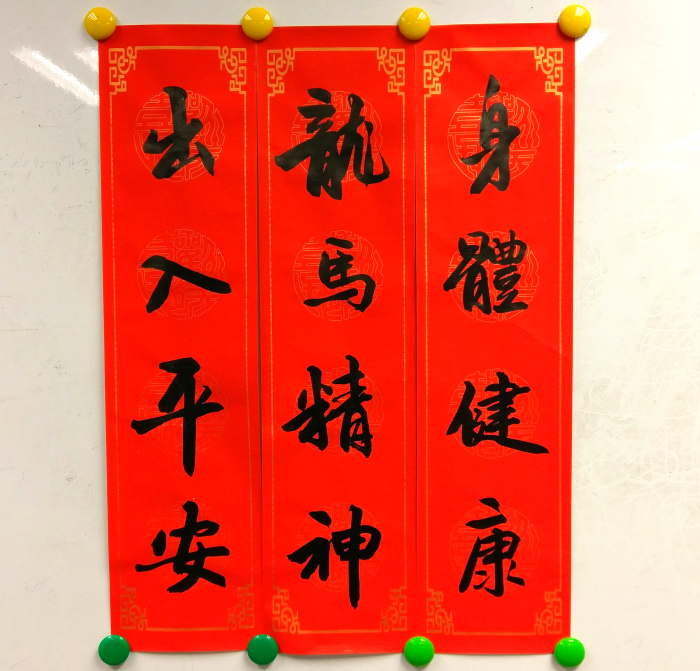 身體健康
龍馬精神
出入平安